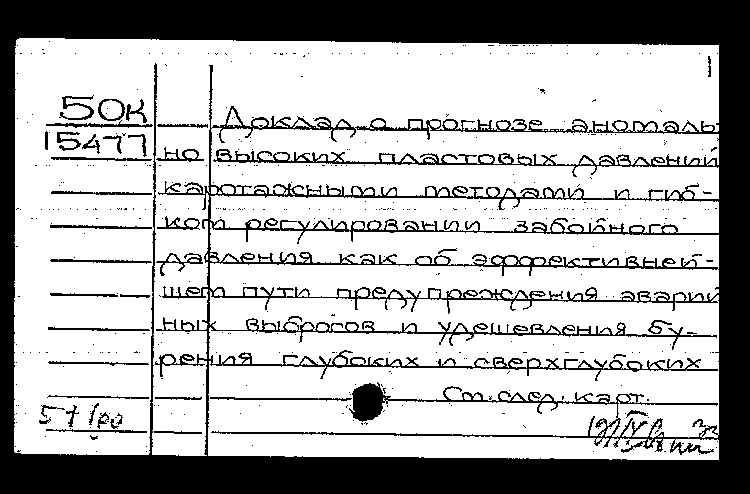 50К
15477
Доклад о прогнозе аномаль-
но высоких пластовых давлений
каротажными методами и гиб-
ком регулировании забойного
давления как об эффективней-
шем пути предупреждения аварий
ных выбросов и удешевления бу-
рения глубоких и сверхглубоких
См. след. карт.